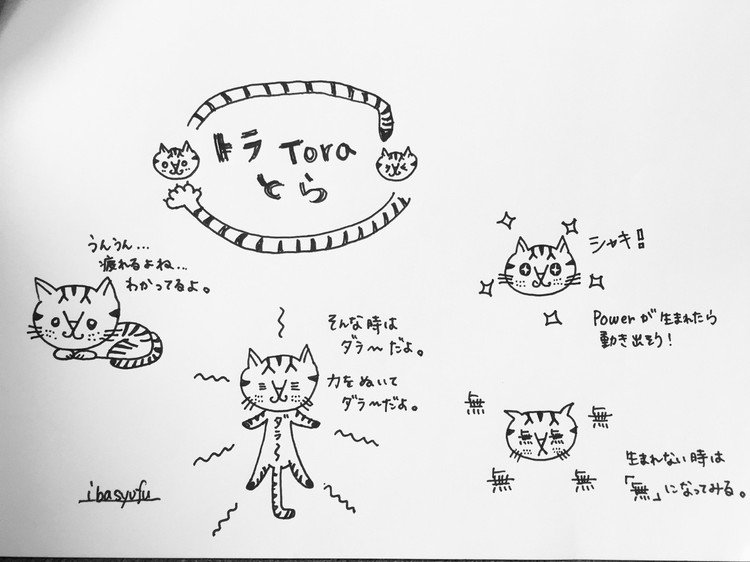 トラ Tora
とら
うんうん...
疲れるよね...
わかってるよ。
そんな時は
ダラ〜だよ。
力をぬいて
ダラ〜だよ。
ダラ〜
シャキ!!
Powerが生まれたら
動き出そう!
無
無
無 無
無
無
生まれない時は
「無」になってみる。
ibasyufu